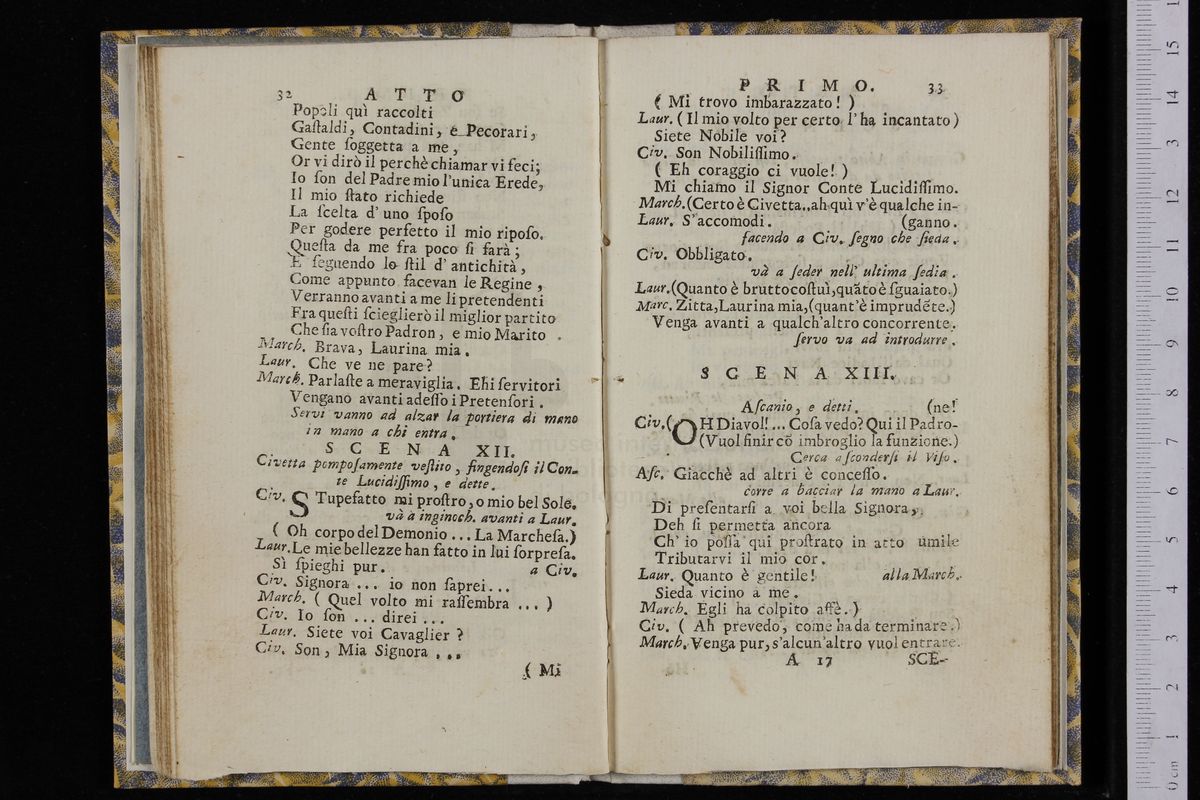 32 A T T O
Popoli quì raccolti
Gaſtaldi, Contadini, e Pecorari,
Gente ſoggetta a me,
Or vi dirò il perchè chiamar vi feci;
Io ſon del Padre mio l'unica Erede,
Il mio ſtato richiede
La ſcelta d' uno ſpoſo
Per godere perfetto il mio ripoſo.
Queſta da me fra poco ſi farà;
E ſeguendo lo ſtil d' antichità,
Come appunto facevan le Regine,
Verranno avanti a me li pretendenti
Fra queſti ſcieglierò il miglior partito
Che ſia voſtro Padron, e mio Marito.
March. Brava, Laurina mia.
Laur. Che ve ne pare?
March. Parlaſte a meraviglia. Ehi ſervitori
Vengano avanti adeſſo i Pretenſori.
Servi vanno ad alzar la portiera di mano
in mano a chi entra.
S C E N A XII.
Civetta pompoſamente veſtito, fingendoſi il Con-
te Lucidiſſimo, e dette.
Civ. STupefatto mi proſtro, o mio bel Sole.
và a inginoch. avanti a Laur.
( Oh corpo del Demonio ... La Marcheſa.)
Laur. Le mie bellezze han fatto in lui ſorpreſa.
Sì ſpieghi pur. a Civ.
Civ. Signora ... io non ſaprei...
March. ( Quel volto mi raſſembra ... )
Civ. Io ſon ... direi ...
Laur. Siete voi Cavaglier ?
Civ. Son, Mia Signora ...
( Mi
P R I M O. 33
( Mi trovo imbarazzato! )
Laur. (Il mio volto per certo l'ha incantato)
Siete Nobile voi?
Civ. Son Nobiliſſimo.
( Eh coraggio ci vuole! )
Mi chiamo il Signor Conte Lucidiſſimo.
March. (Certo è Civetta., ah quì v'è qualche in-
Laur. S'accomodi. (ganno.
facendo a Civ. ſegno che ſieda.
Civ. Obbligato.
và a ſeder nell' ultima ſedia.
Laur. (Quanto è brutto coſtuì, quãto è ſguaiato.)
Marc. Zitta, Laurina mia, (quant'è imprudẽte.)
Venga avanti a qualch'altro concorrente.
ſervo va ad introdurre.
S C E N A XIII.
Aſcanio, e detti. (ne!
Civ. (OH Diavol!... Coſa vedo? Qui il Padro-
(Vuol finir cõ imbroglio la funzione.)
Cerca aſconderſi il Viſo.
Aſc. Giacchè ad altri è conceſſo.
corre a bacciar la mano a Laur.
Di preſentarſi a voi bella Signora,
Deh ſi permetta ancora
Ch' io poſſa qui proſtrato in atto umile
Tributarvi il mio cor.
Laur. Quanto è gentile! alla March.
Sieda vicino a me.
March. Egli ha colpito affè.)
Civ. ( Ah prevedo, come ha da terminare.)
March. Venga pur, s'alcun'altro vuol entrare.
A 17 SCE-